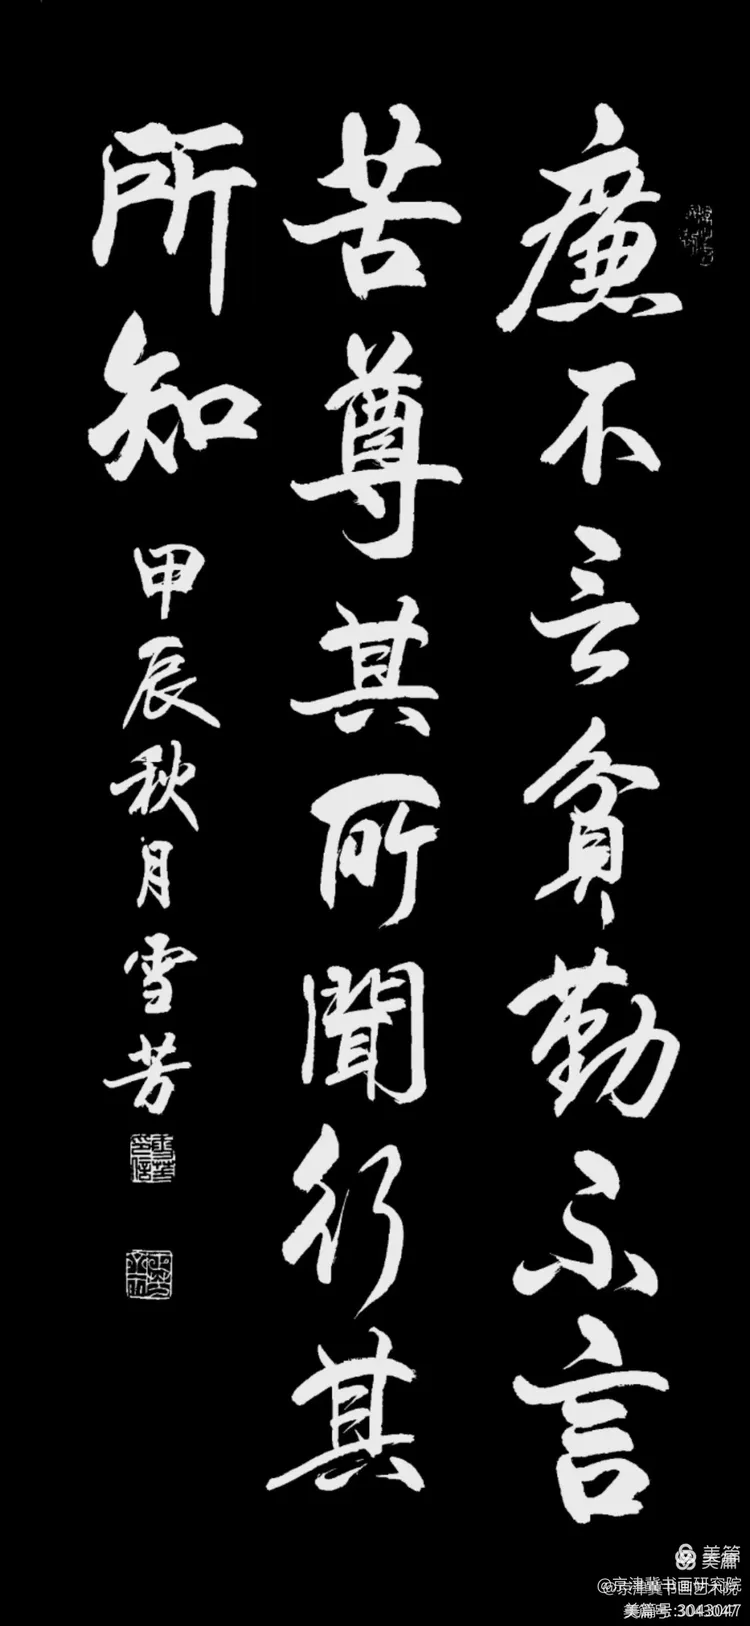 廉不言貧勤不言
苦尊其所聞行其
所知
甲辰秋月雪芳
美篇
@京津冀书画艺术院
美篇号:3043047